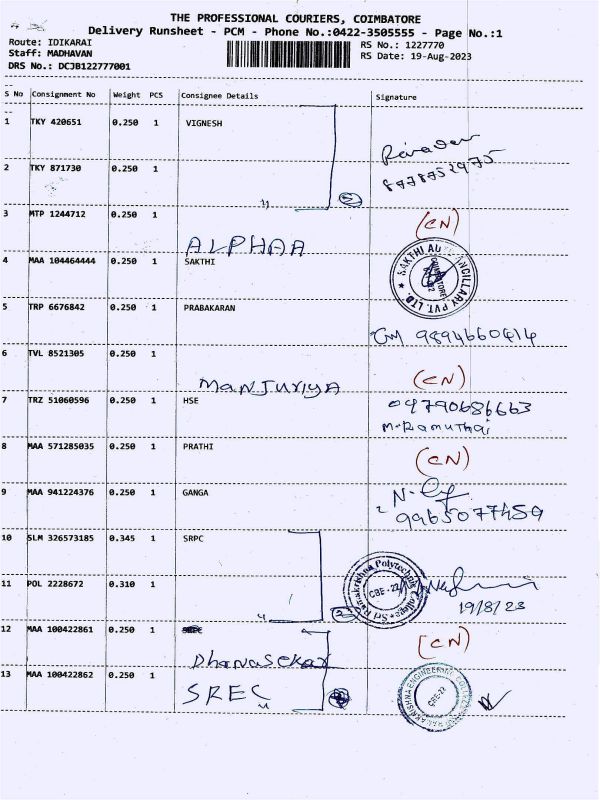 THE PROFESSIONAL COURIERS, COIMBATORE
Delivery Runsheet - PCM - Phone No.:0422-3505555 - Page No.:1
Route: IDIKARAI
Staff: MADHAVAN
DRS No.: DCJB122777001
RS No.: 1227770
RS Date: 19-Aug-2023
S No Consignment No Weight PCS Consignee Details Signature
1 TKY 420651 0.250 1 VIGNESH
2 TKY 871730 0.250 1 8778752975
3 MTP 1244712 0.250 1 ALPHAA (CN)
4 MAA 104464444 0.250 1 SAKTHI
5 TRP 6676842 0.250 1 PRABAKARAN
9894660414
6 TVL 8521305 0.250 1 Manjuriya (CN)
7 TRZ 51060596 0.250 1 HSE 09790686663
M. Ramuthai
8 MAA 571285035 0.250 1 PRATHI (CN)
9 MAA 941224376 0.250 1 GANGA
9965077459
10 SLM 326573185 0.345 1 SRPC
11 POL 2228672 0.310 1
Sri Ramakrishna Polytechnic College CBE-22
19/8/23
12 MAA 100422861 0.250 1 Dhanasekar (CN)
13 MAA 100422862 0.250 1 SREC
CBE-22